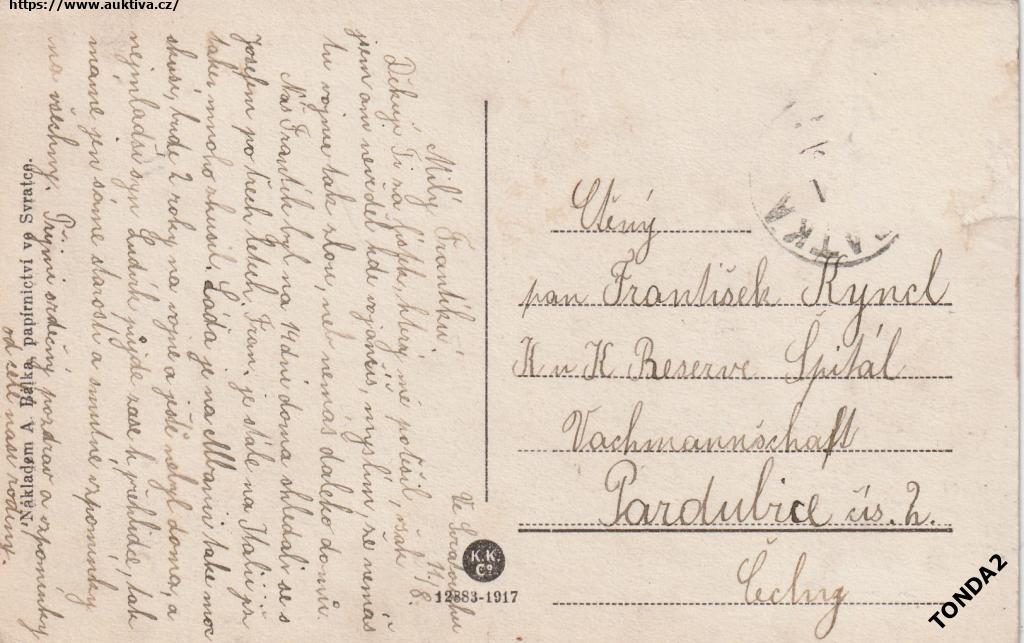 https://www.auktiva.cz/
Ve Svratouchu
11./8.
Milý Frantíku!
Děkuji Ti na lístek, který mě potěšil, však
jsem ani nevěděl kde vojančíš, myslím, že nemáš
tu vojnu tak zlou, neb nemáš daleko domů.
Náš Frantík byl na 14 dní doma shledali se s
Josefem po třech letech, Fran. je stále na Italii při
také mnoho zkusil. Láďa je na Albanii také moc
zkusí, bude 2 roky na vojně a ještě nebyl doma, a
nejmladší syn Ludvík půjde zase k přehlídce, tak
máme jen samé starosti a smutné vzpomínky
na všechny. Přijmi srdečný pozdrav a vzpomínky
od celé naší rodiny.
Nákladem A. Bajka, papírnictví ve Svratce.
K.K.
Co
12883-1917
ATKA
Ctěný
pan František Kyncl
K u K Reserve Špitál
Vachmannschaft
Pardubice čís. 2.
Čechy
TONDA2